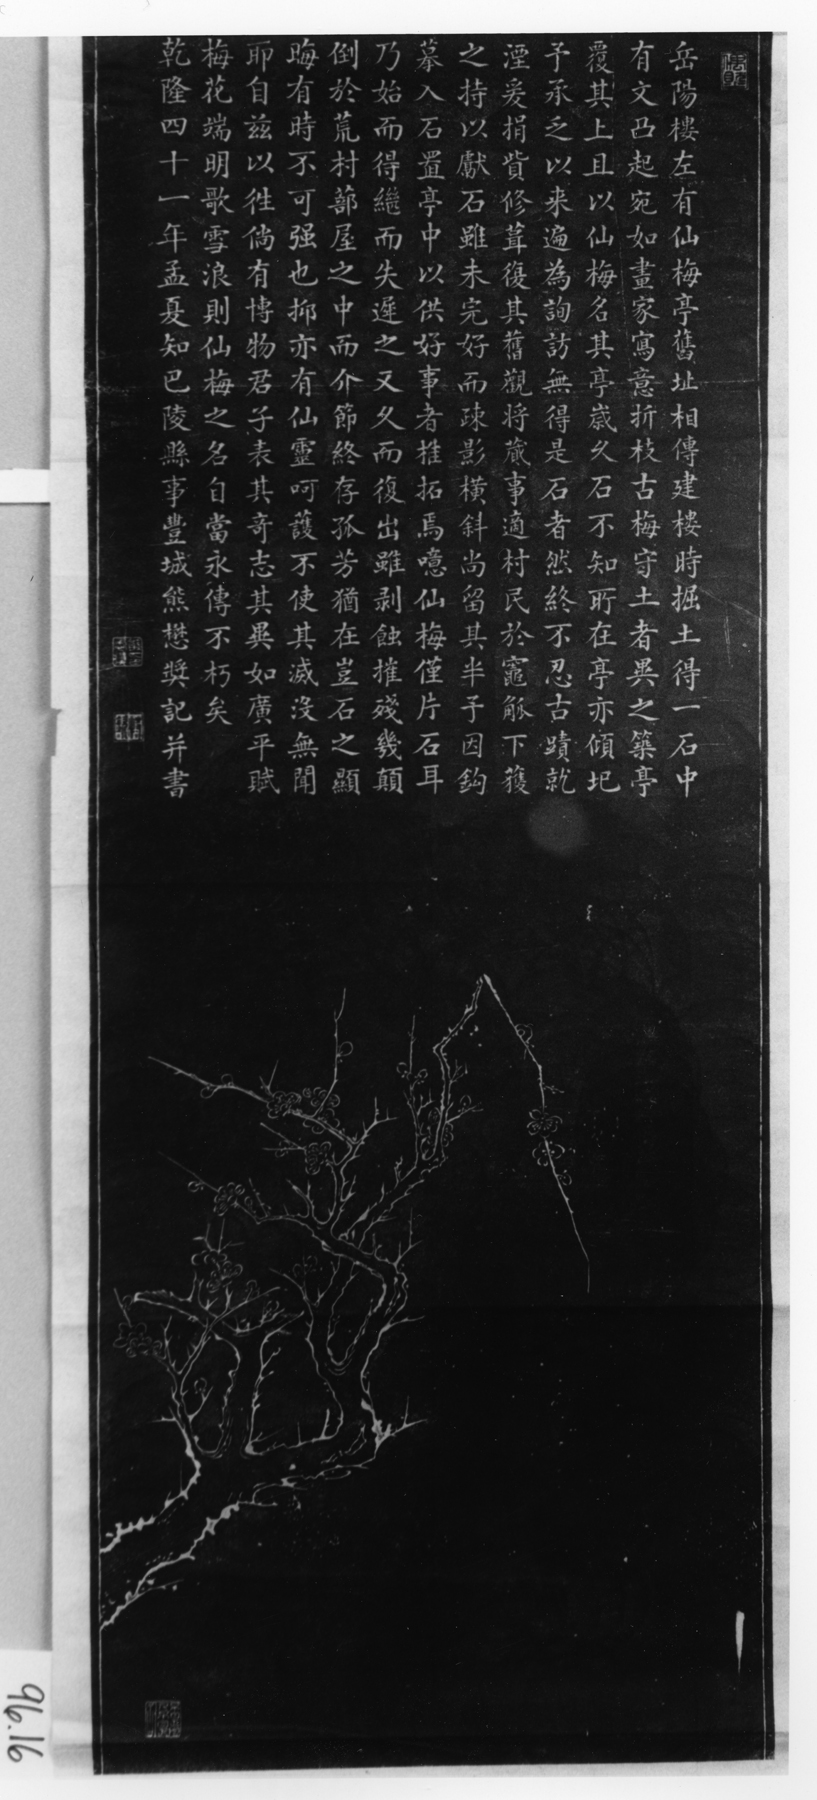 岳陽樓左有仙梅亭舊址相傳建樓時掘土得一石中
有文凸起宛如畫家寫意折枝古梅守土者異之築亭
覆其上且以仙梅名其亭歲久石不知所在亭亦傾圮
予承乏以來遍為詢訪無得是石者然終不忍古蹟就
湮爰捐貲修葺復其舊觀將蕆事適村民於竈觚下獲
之持以獻石雖未完好而疎影橫斜尚留其半予因鈎
摹入石置亭中以供好事者椎拓焉噫仙梅僅片石耳
乃始而得繼而失遲之又久而復出雖剥蝕摧殘幾顛
倒於荒村蔀屋之中而介節終存孤芳猶在豈石之顯
晦有時不可强也抑亦有仙靈呵護不使其滅沒無聞
耶自兹以徃倘有博物君子表其竒志其異如廣平賦
梅花端明歌雪浪則仙梅之名自當永傳不朽矣
乾隆四十一年孟夏知巴陵縣事豐城熊懋奬記并書
96.16